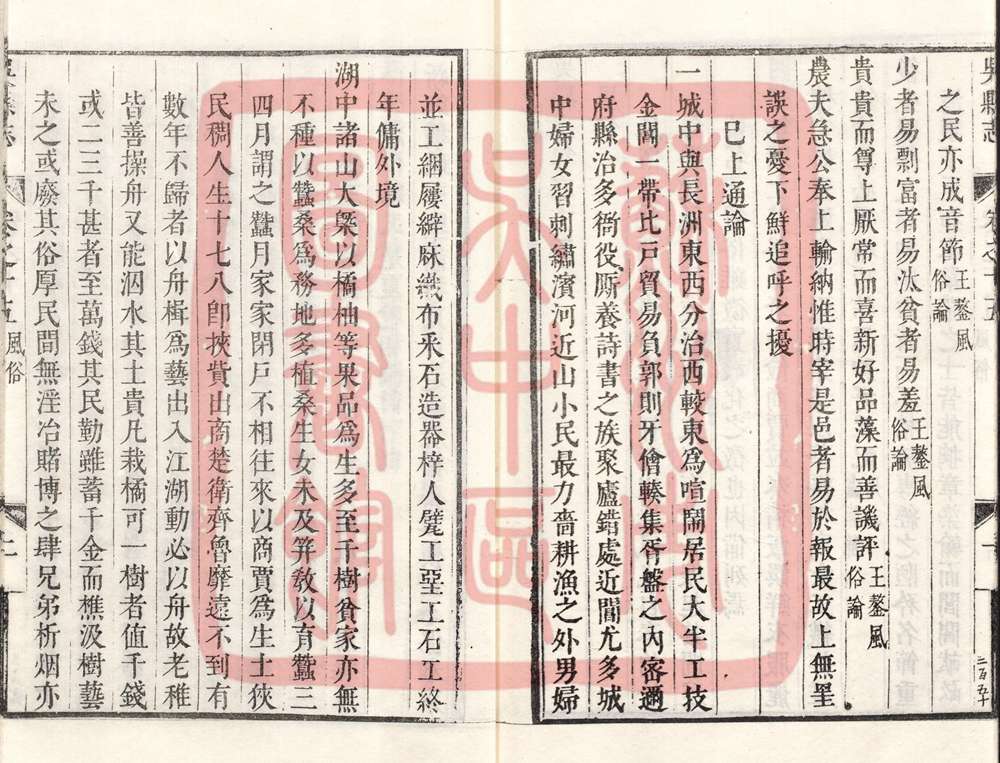 吳縣志
之民亦成音節王鏊風俗論
少者易剽富者易汰貧者易羞王鏊風俗論
貴貴而尊上厭常而喜新好品藻而善譏評王鏊風俗論
農夫急公奉上輸納惟時宰是邑者易於報最故上無罣
誤之憂下鮮追呼之擾
已上通論
一城中與長洲東西分治西較東爲喧鬧居民大半工技
金閶一帶比戶貿易負郭則牙儈輳集胥盤之內密邇
府縣治多衙役厮養詩書之族聚廬錯處近閶尤多城
中婦女習刺繡濱河近山小民最力嗇耕漁之外男婦
並工綑屨繂麻織布釆石造器梓人甓工堊工石工終
年傭外境
湖中諸山大槩以橘柚等果品爲生多至千樹貧家亦無
不種以蠶桑爲務地多植桑生女未及筓敎以育蠶三
四月謂之蠶月家家閉戸不相往來以商賈爲生土狹
民稠人生十七八卽挾貲出商楚衛齊魯靡遠不到有
數年不歸者以舟楫爲藝出入江湖動必以舟故老稚
皆善操舟又能泅水其土貴凡栽橘可一樹者值千錢
或二三千甚者至萬錢其民勤雖蓄千金而樵汲樹藝
未之或廢其俗厚民間無淫冶賭博之肆兄弟析烟亦
風俗
二百五十
蘇州吳中區圖書館